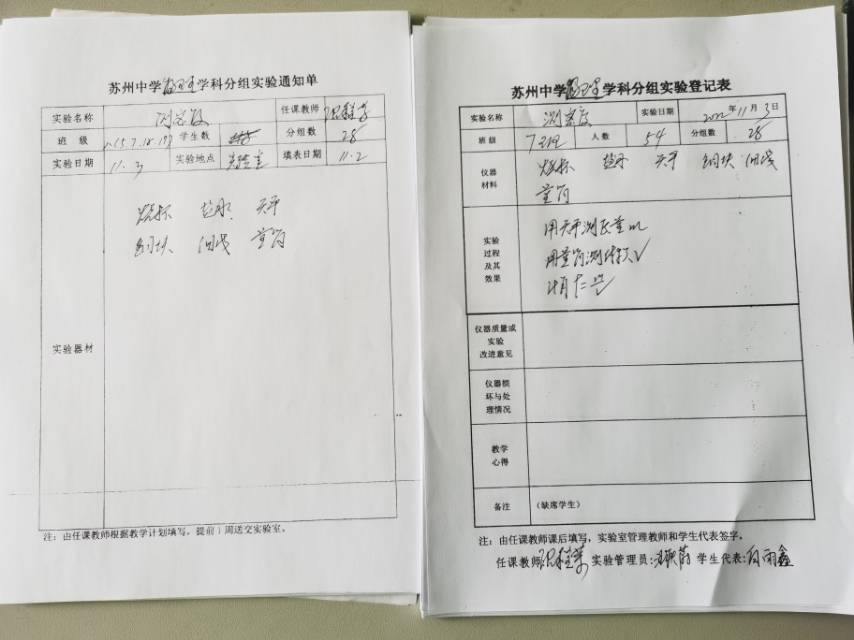 苏州中学物理学科分组实验通知单
实验名称 测密度 任课教师
班 级 学生数 分组数 28
实验日期 11.3 实验地点 实验室 填表日期 11.2
烧杯 盐水 天平
铜块 细线 量筒
实验器材
注：由任课教师根据教学计划填写，提前1周送交实验室。
苏州中学物理学科分组实验登记表
实验名称 测密度 实验日期 2022年11月3日
班 级 7班 人 数 54 分组数 28
仪器
材料
烧杯 盐水 天平 铜块 细线
量筒
实验
过程
及其
效果
用天平测质量m
用量筒测体积V
仪器质量或
实验
改进意见
仪器损
坏与处
理情况
教学
心得
备注 （缺席学生）
注：由任课教师课后填写，实验室管理教师和学生代表签字。
任课教师 实验管理员： 学生代表：